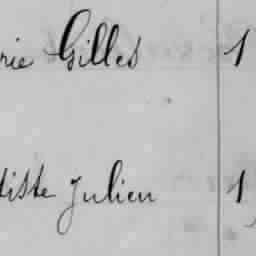 rie Gilles 1
tiste Julien 1